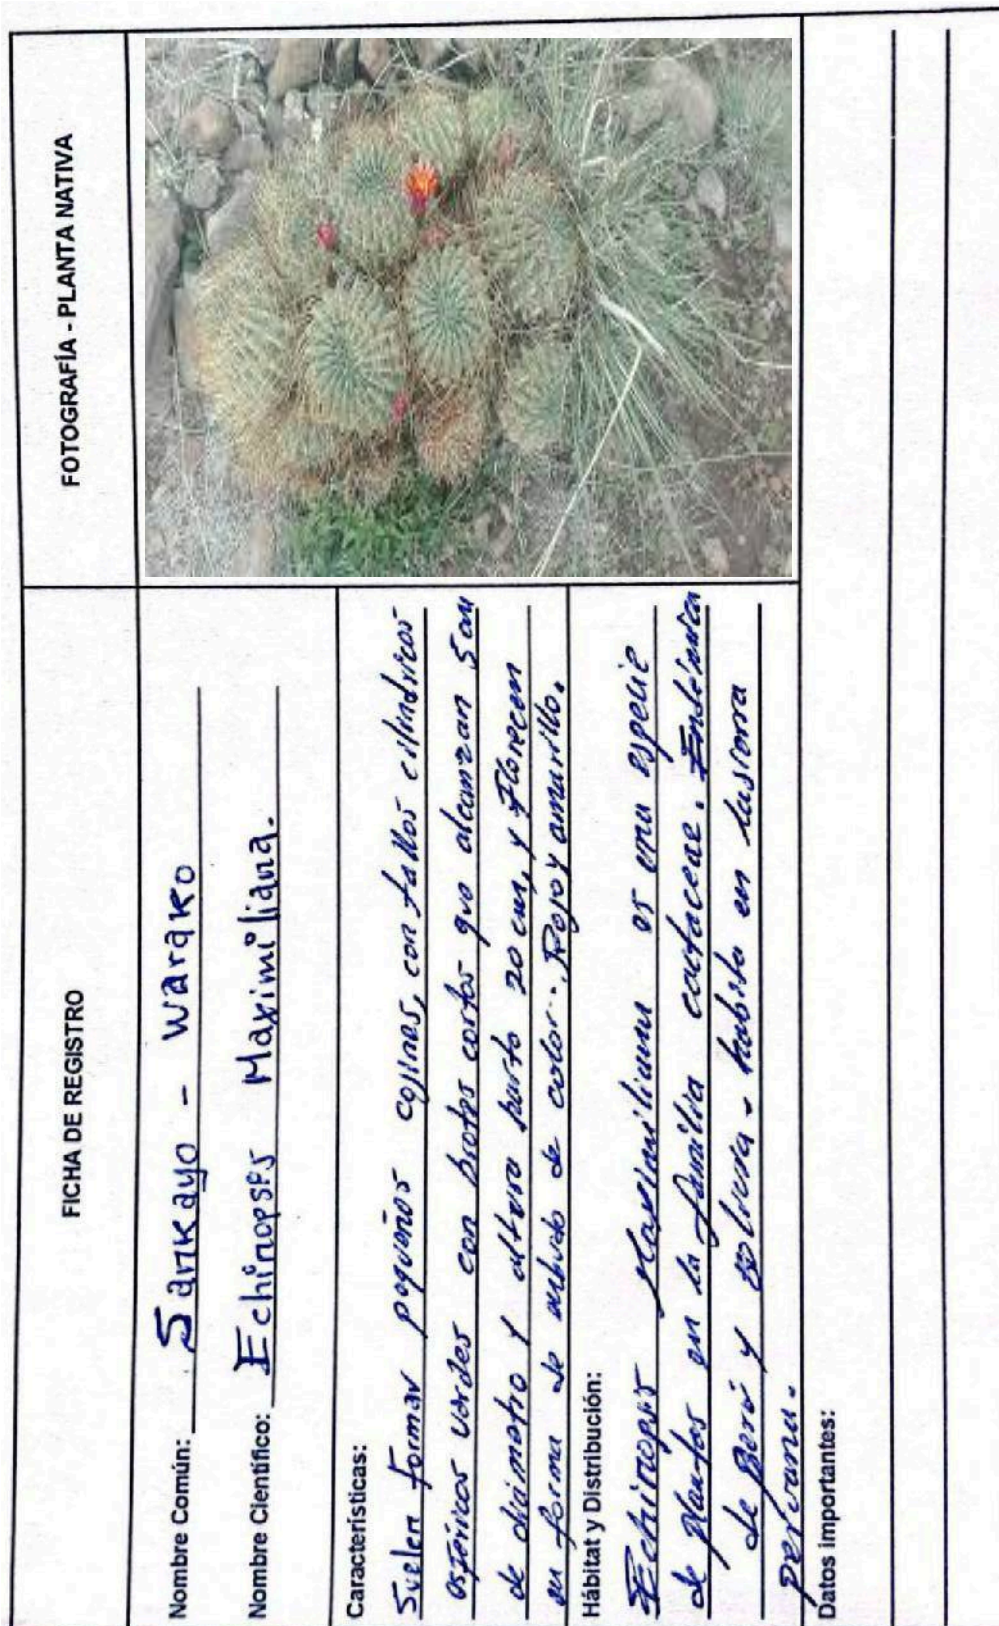 FICHA DE REGISTRO
FOTOGRAFÍA - PLANTA NATIVA
Nombre Común: Sankayo - Warako
Nombre Científico: Echinopsis Maximiliana.
Características:
Suelen formar pequeños cojines, con tallos cilindricos
esféricos verdes con brotes cortos que alcanzan 5 cm
de diametro y altura hasta 20 cm, y Florecen
en forma de embudo de color.. Rojo y amarillo.
Hábitat y Distribución:
Echinopsis Maximiliana es una especie
de plantas en la familia cactaceae. Endémica
de Perú y Bolivia. habita en la sierra
peruana.
Datos importantes: